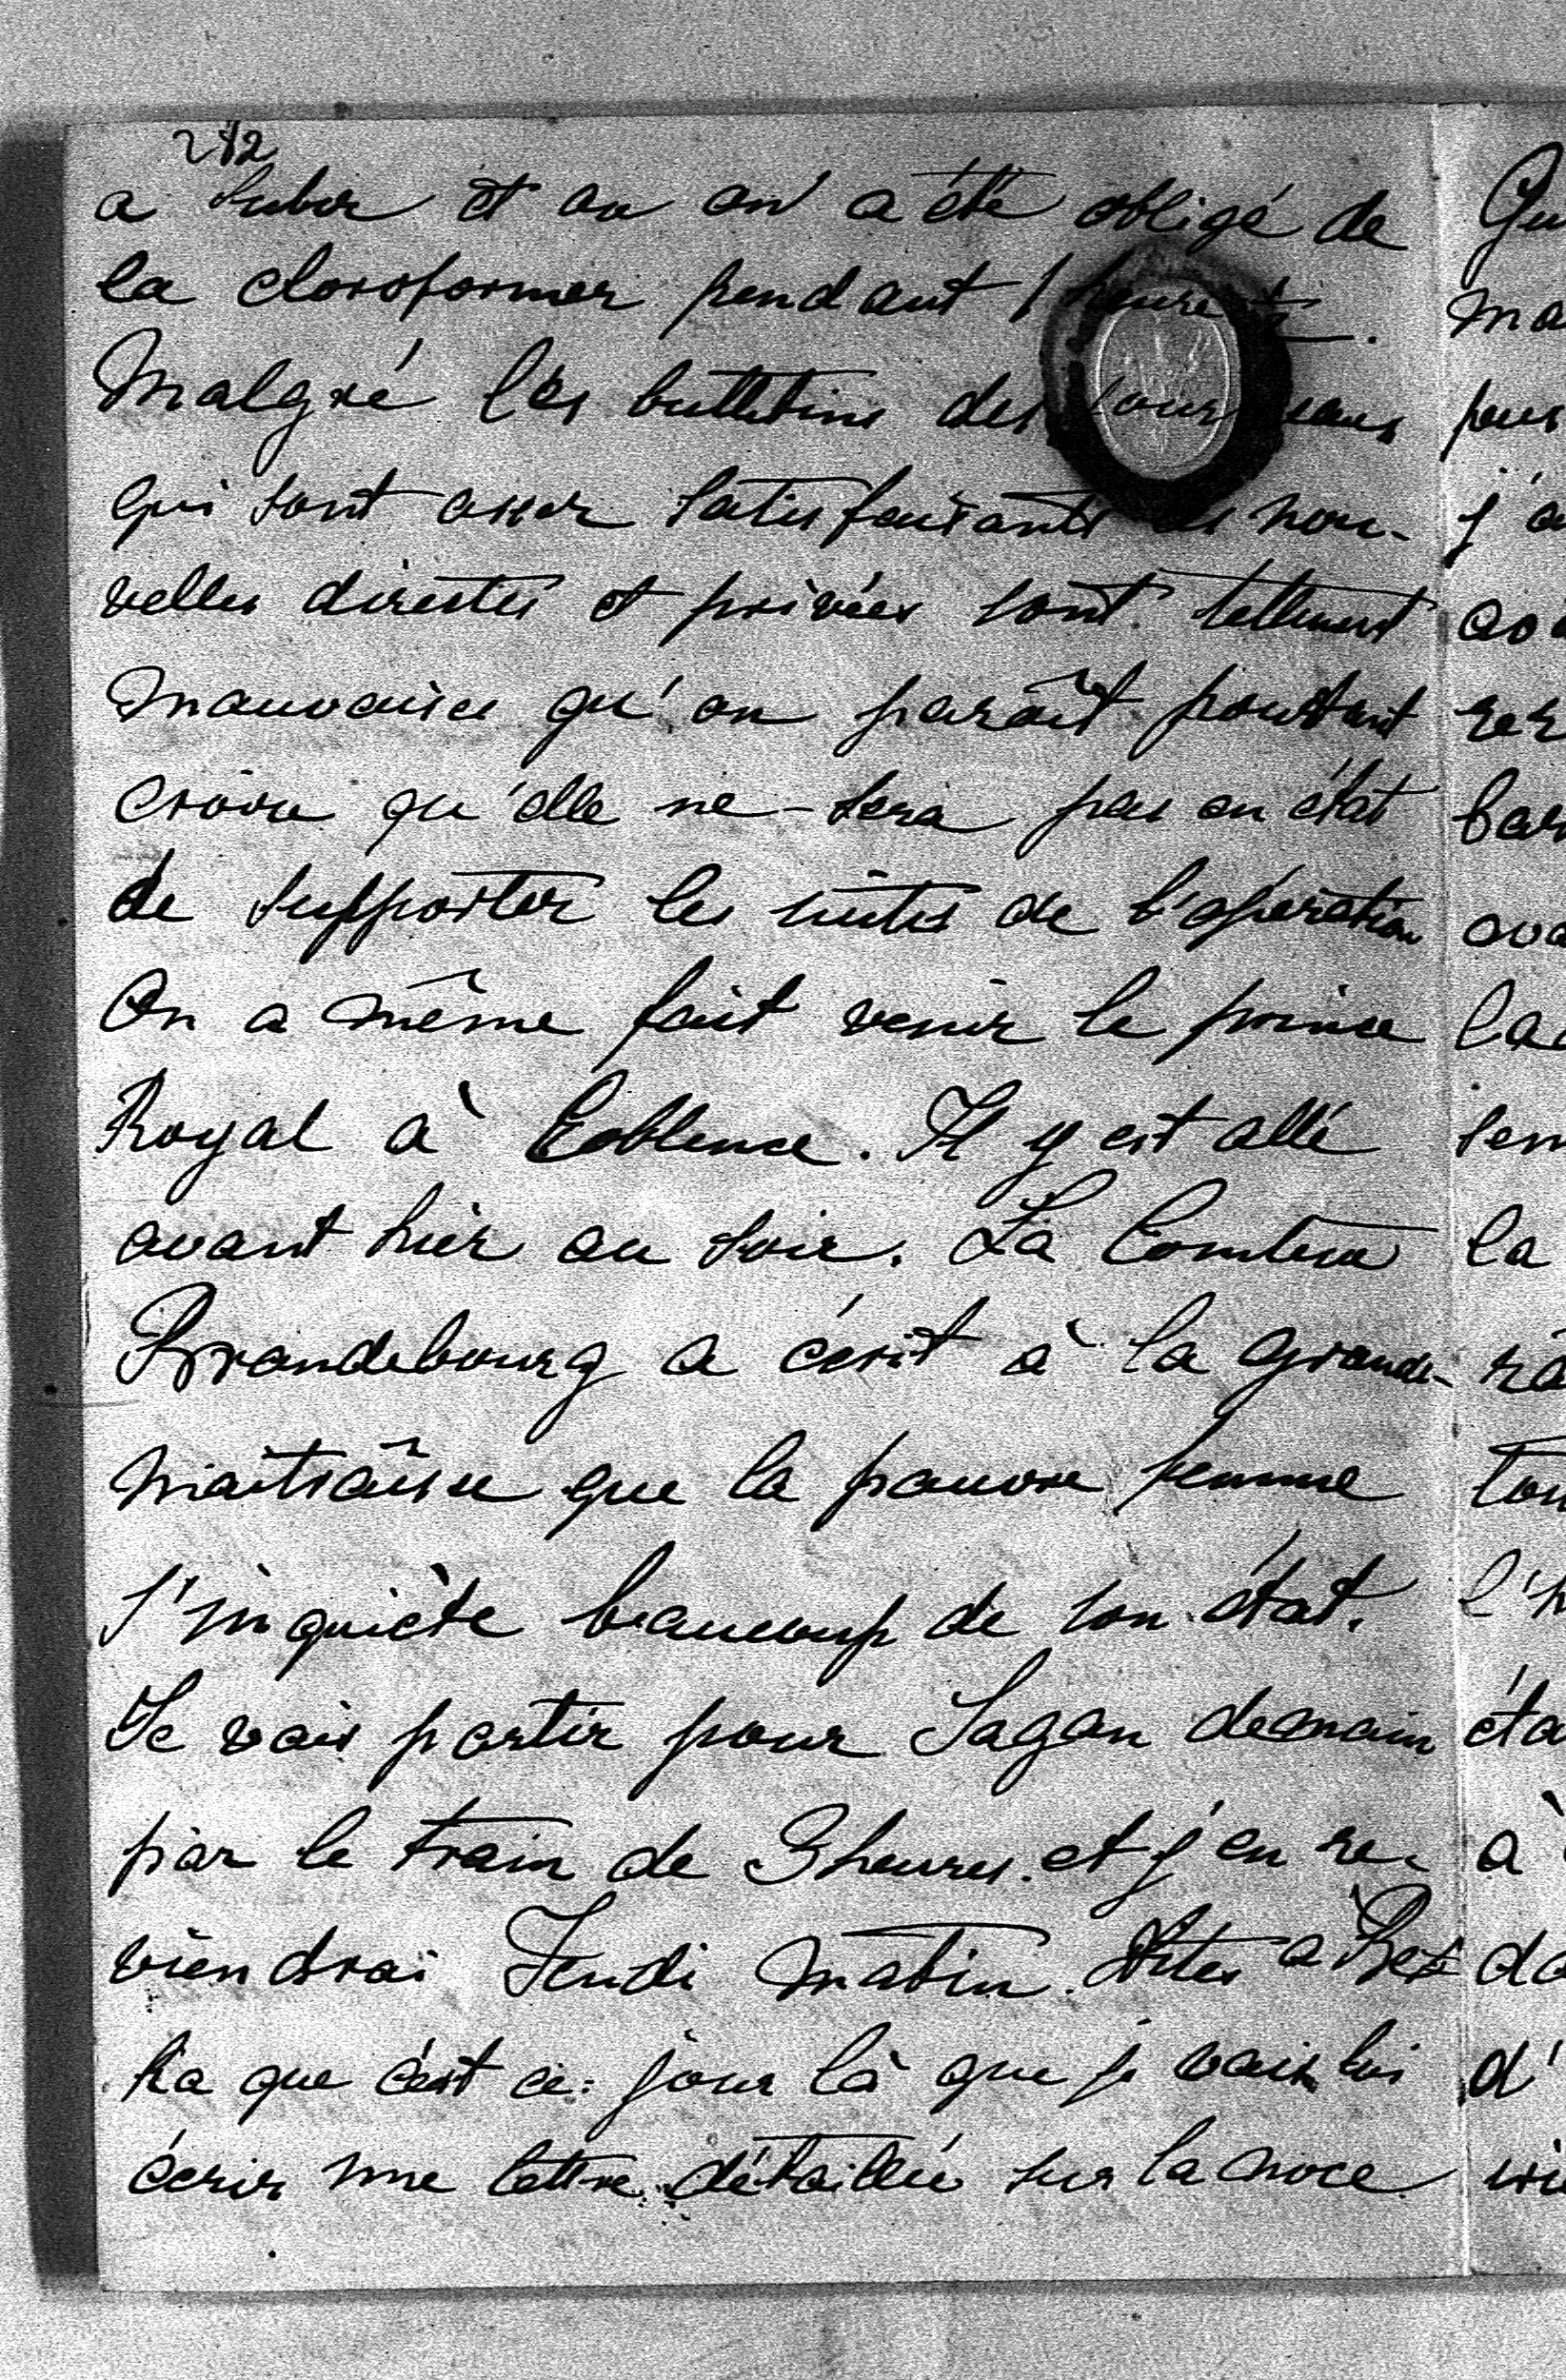 282
a subir et où on a été obligé de
la cloroformer pendant 1 heure ½.
Malgré les bulletins des journeaux
qui sont assez satisfaisants les nou-
velles directes et privées sont tellement
mauvaises qu'on paraît pourtant
croire qu'elle ne sera pas en état
de supporter les suites de l'opération
On a même fait venir le prince
Royal à Coblence. Il y est allé
avant hier au soir. La Comtesse
Brandebourg a écrit à la Grande-
maîtraîsse que la pauvre femme
s'inquiète beaucoup de son état.
Je vais partir pour Sagan demain
par le train de 3 heures et j'en re-
viendrai Jeudi matin. Dites à
ka que c'est ce jour là que je vais lui
écrir une lettre détaillée sur la noce